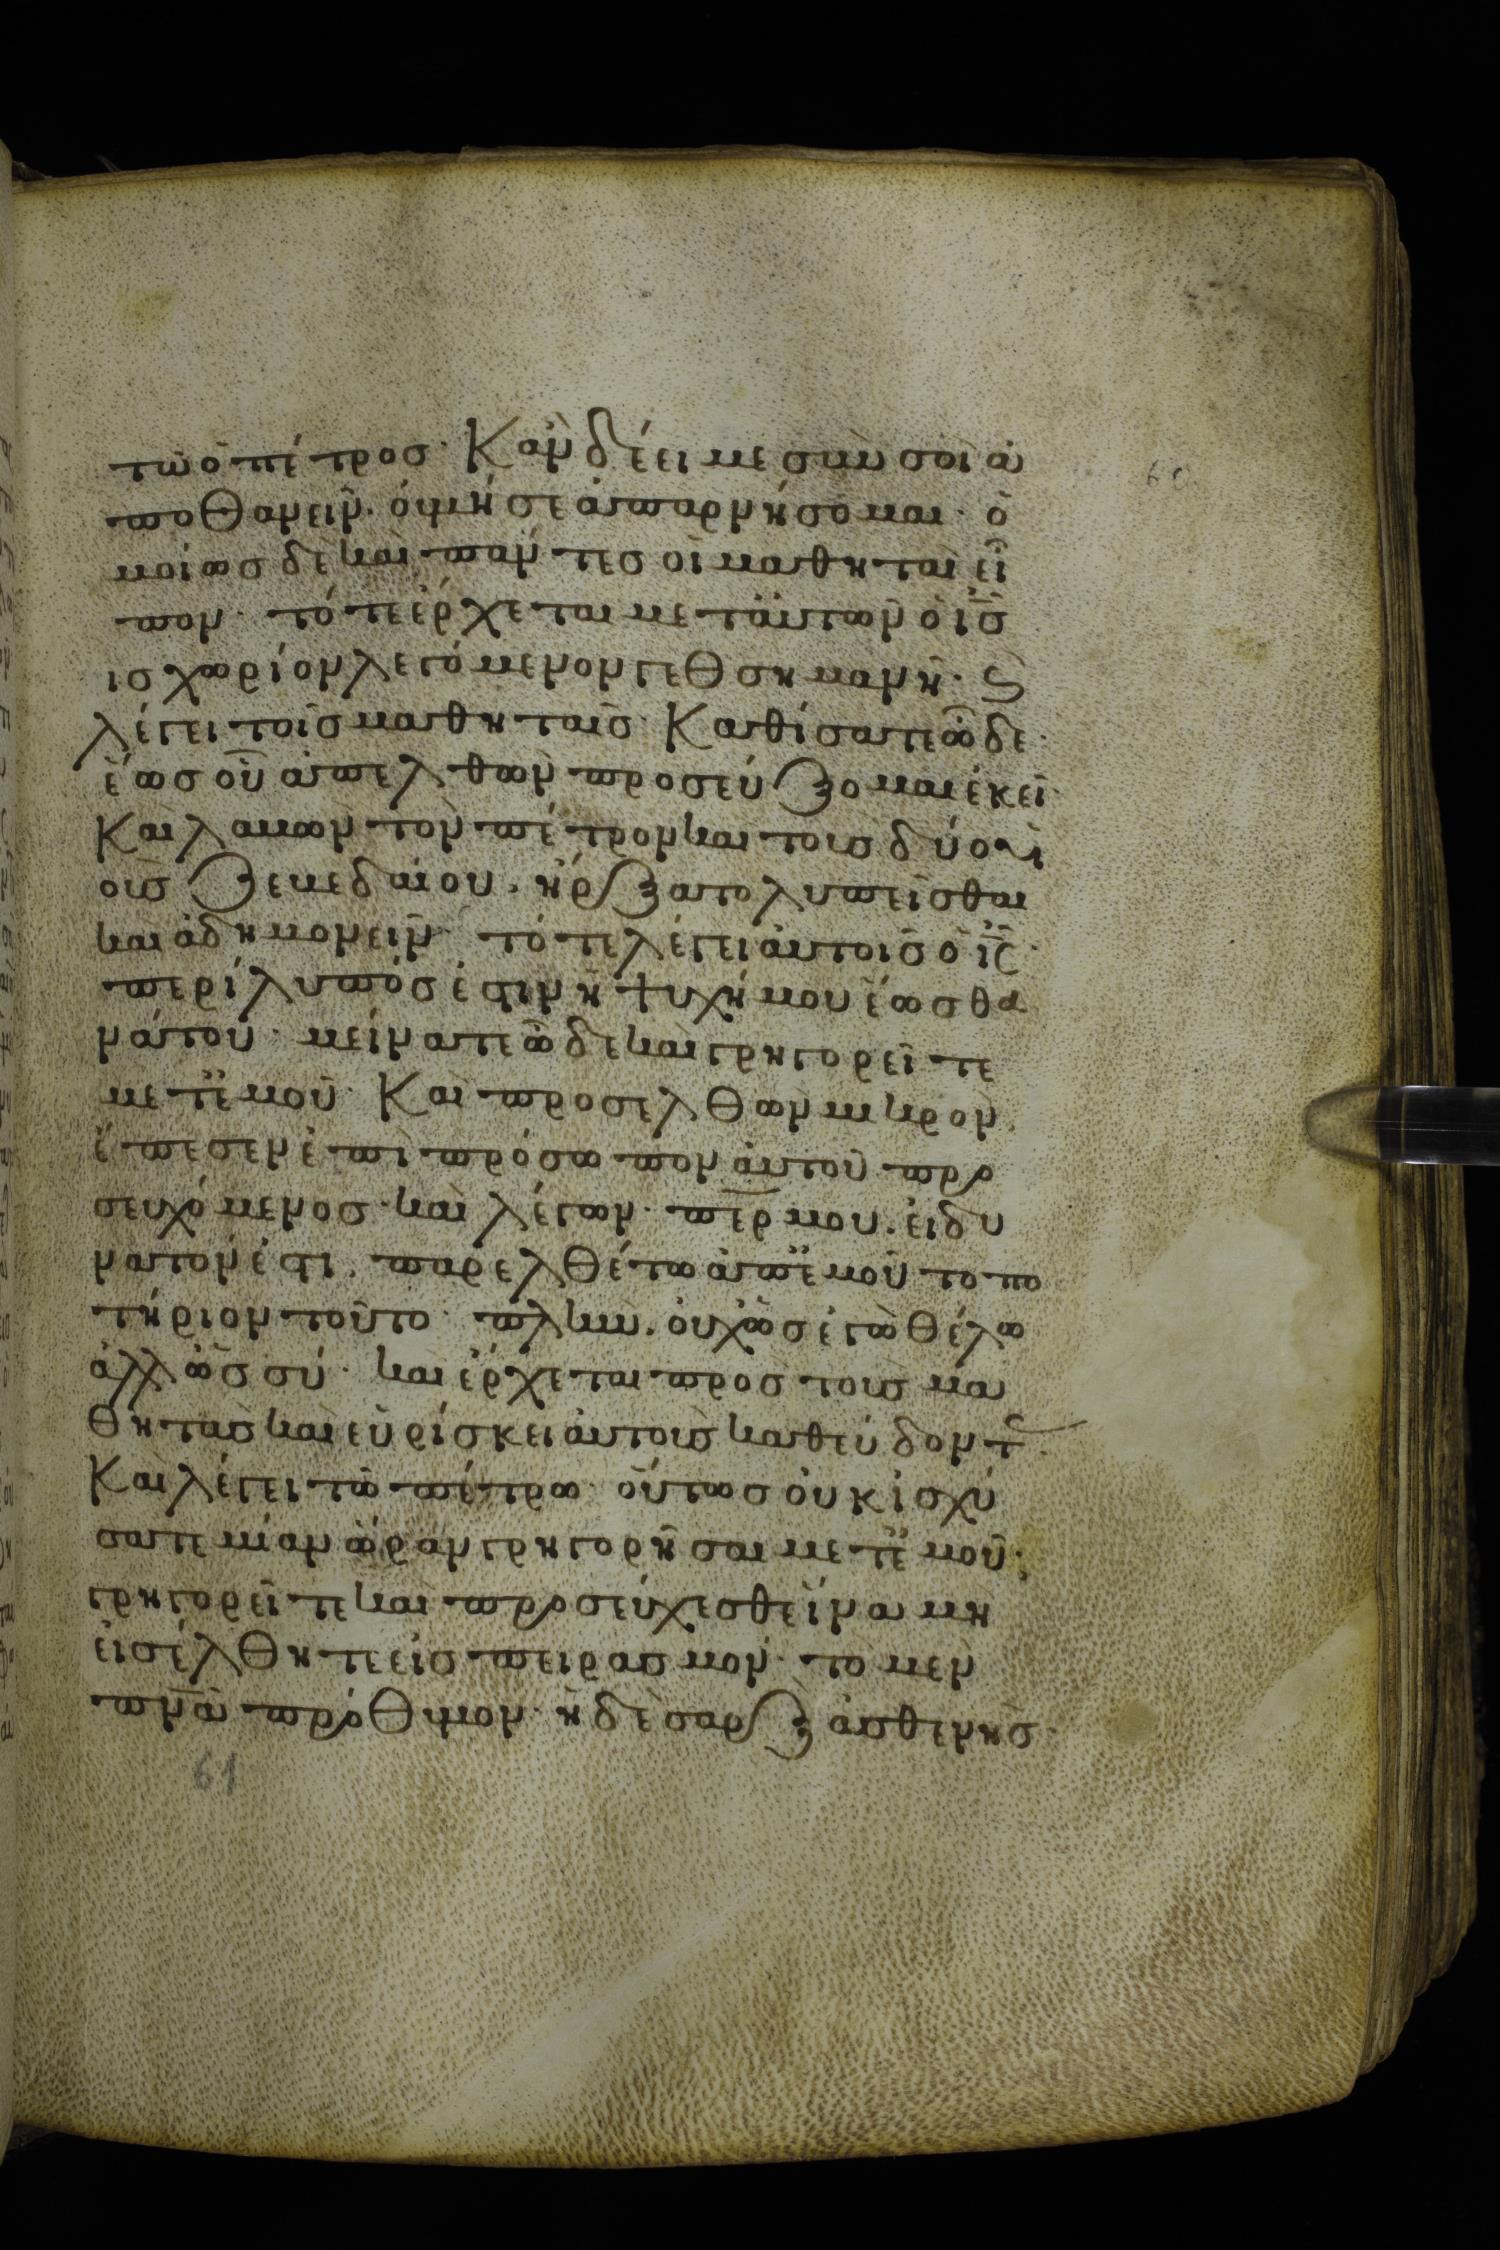 τῶ ὁ πέτρος· Κἂν δέει με σὺν σοὶ ἀ
ποθανεῖν· οὐ μή σε ἀπαρνήσομαι· ὁ
μοίως δὲ καὶ πάντες οἱ μαθηταὶ εἶ
πον· τότε ἔρχεται μετ' αὐτῶν ὁ ις̅
ις χωρίον λεγόμενον γεθσημανῆ· ϛ
λέγει τοῖς μαθηταῖς· Καθίσατε ὧδε·
ἕως οὗ ἀπελθὼν προσεύξομαι ἐκεῖ·
Καὶ λαβὼν τὸν πέτρον καὶ τοὺς δύο υἱ
οὺς ζεβεδαίου· ἤρξατο λυπεῖσθαι
καὶ ἀδημονεῖν· τότε λέγει αὐτοῖς ὁ ις̅·
περίλυπός ἐστιν ἡ ψυχή μου ἕως θα
νάτου· μείνατε ὧδε καὶ γρηγορεῖτε
μετ' ἐμοῦ· Καὶ προσελθὼν μικρὸν
ἔπεσεν ἐπὶ πρόσωπον αὐτοῦ προ
σευχόμενος· καὶ λέγων· περ̅ μου· εἰ δυ
νατόν ἐστι· παρελθέτω ἀπ' ἐμοῦ τὸ πο
τήριον τοῦτο· πλὴν· οὐχ ὡς ἐγὼ θέλω
ἀλλ' ὡς σύ· καὶ ἔρχεται πρὸς τοὺς μα
θητὰς καὶ εὑρίσκει αὐτοὺς καθεύδοντ
Καὶ λέγει τῶ πέτρω· οὕτως οὐκ ἰσχύ
σατε μίαν ὥραν γρηγορῆσαι μετ' ἐμοῦ;
γρηγορεῖτε καὶ προσεύχεσθε ἵνα μὴ
εἰσέλθητε εἰς πειρασμόν· τὸ μὲν
πνα̅ πρόθυμον· ἡ δὲ σὰρξ ἀσθενής·
61